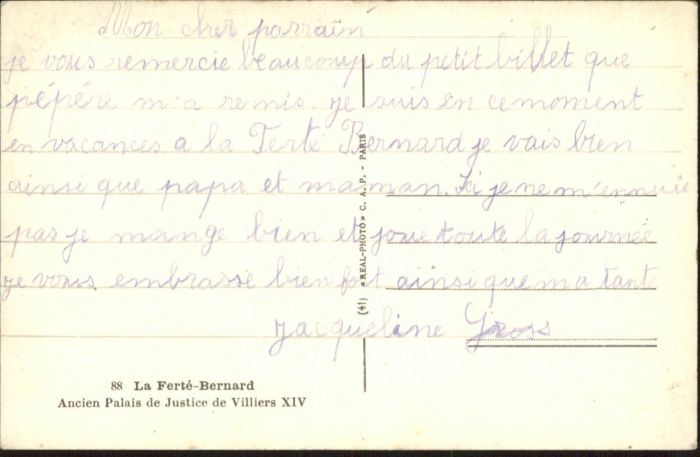 Mon cher parrain
je vous remercie beaucoup du petit billet que
pépére m'a remis. je suis en cemoment
en vacances a la Ferté Bernard je vais bien
ainsi que papa et maman. Ici je ne m'ennuie
pas je mange bien et joue toute la journée
je vous embrasse bien fort ainsi que ma tante
Jacqueline
(41) «REAL-PHOTO» C. A. P. - PARIS
88 La Ferté-Bernard
Ancien Palais de Justice de Villiers XIV